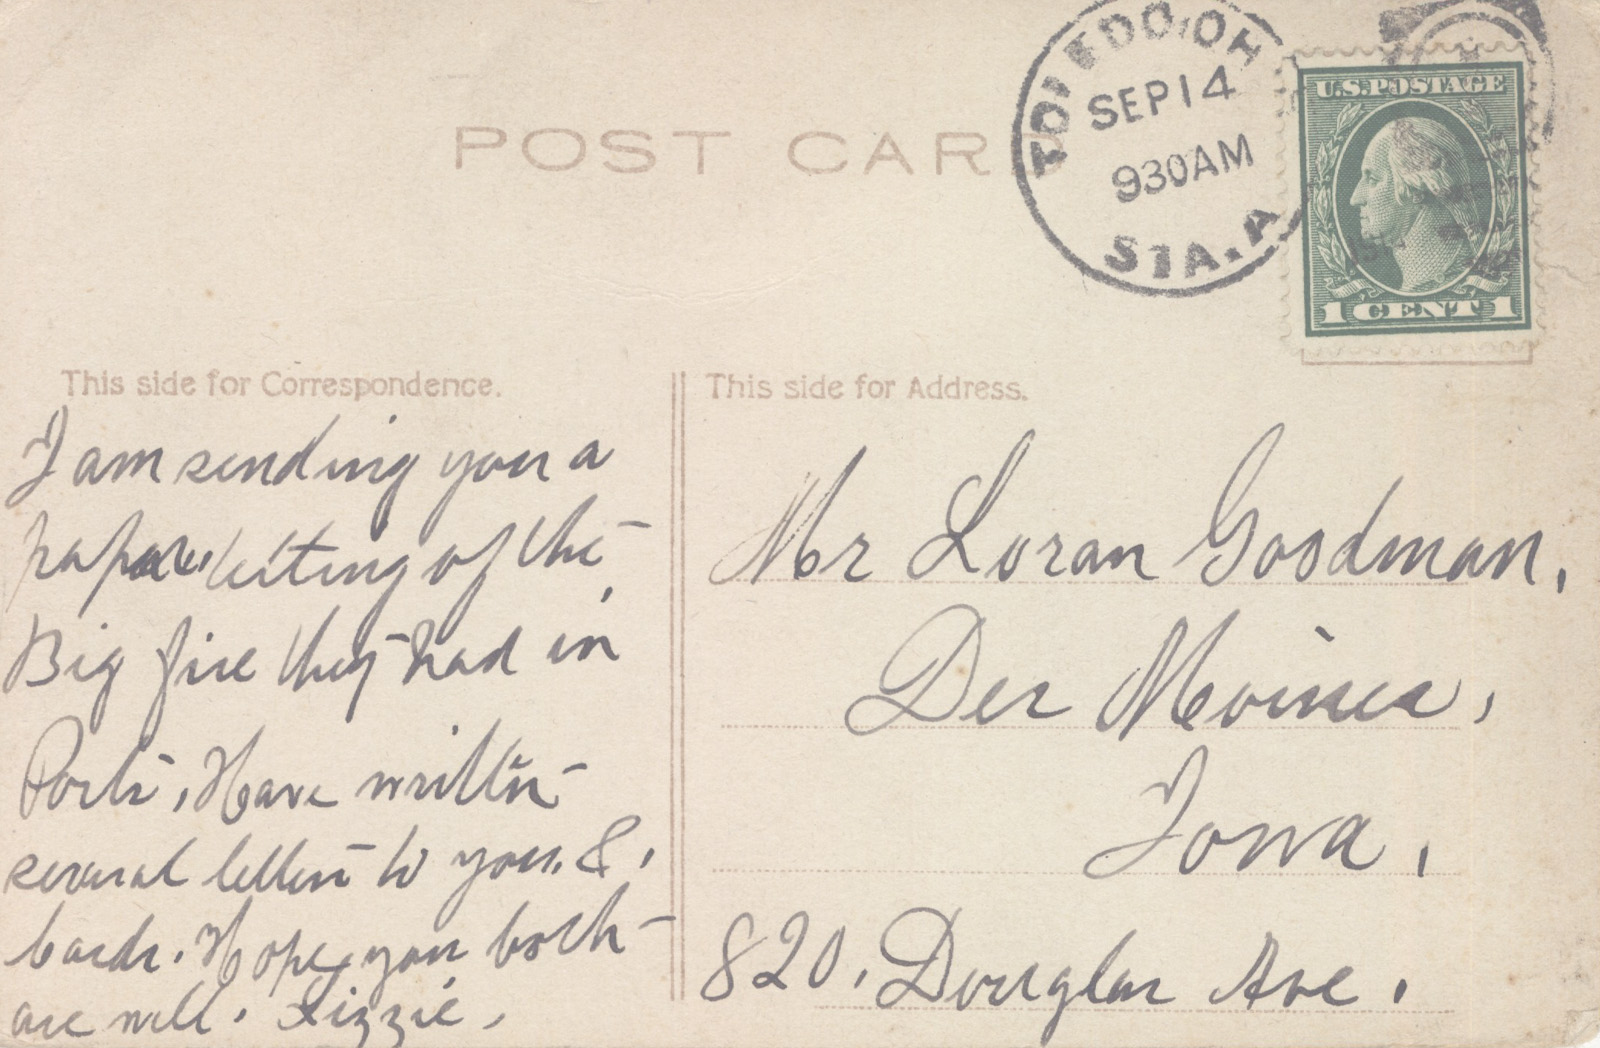 POST CARD
TOLEDO, OH
SEP 14
930 AM
STA. A
U.S. POSTAGE
1 CENT 1
This side for Correspondence.
I am sending you a
paper telling of the
Big fire they had in
Ports, Have written
several letters to you &
cards. Hope you both
are well. Lizzie,
This side for Address.
Mr Loran Goodman,
Des Moines,
Iowa,
820, Douglas Ave,